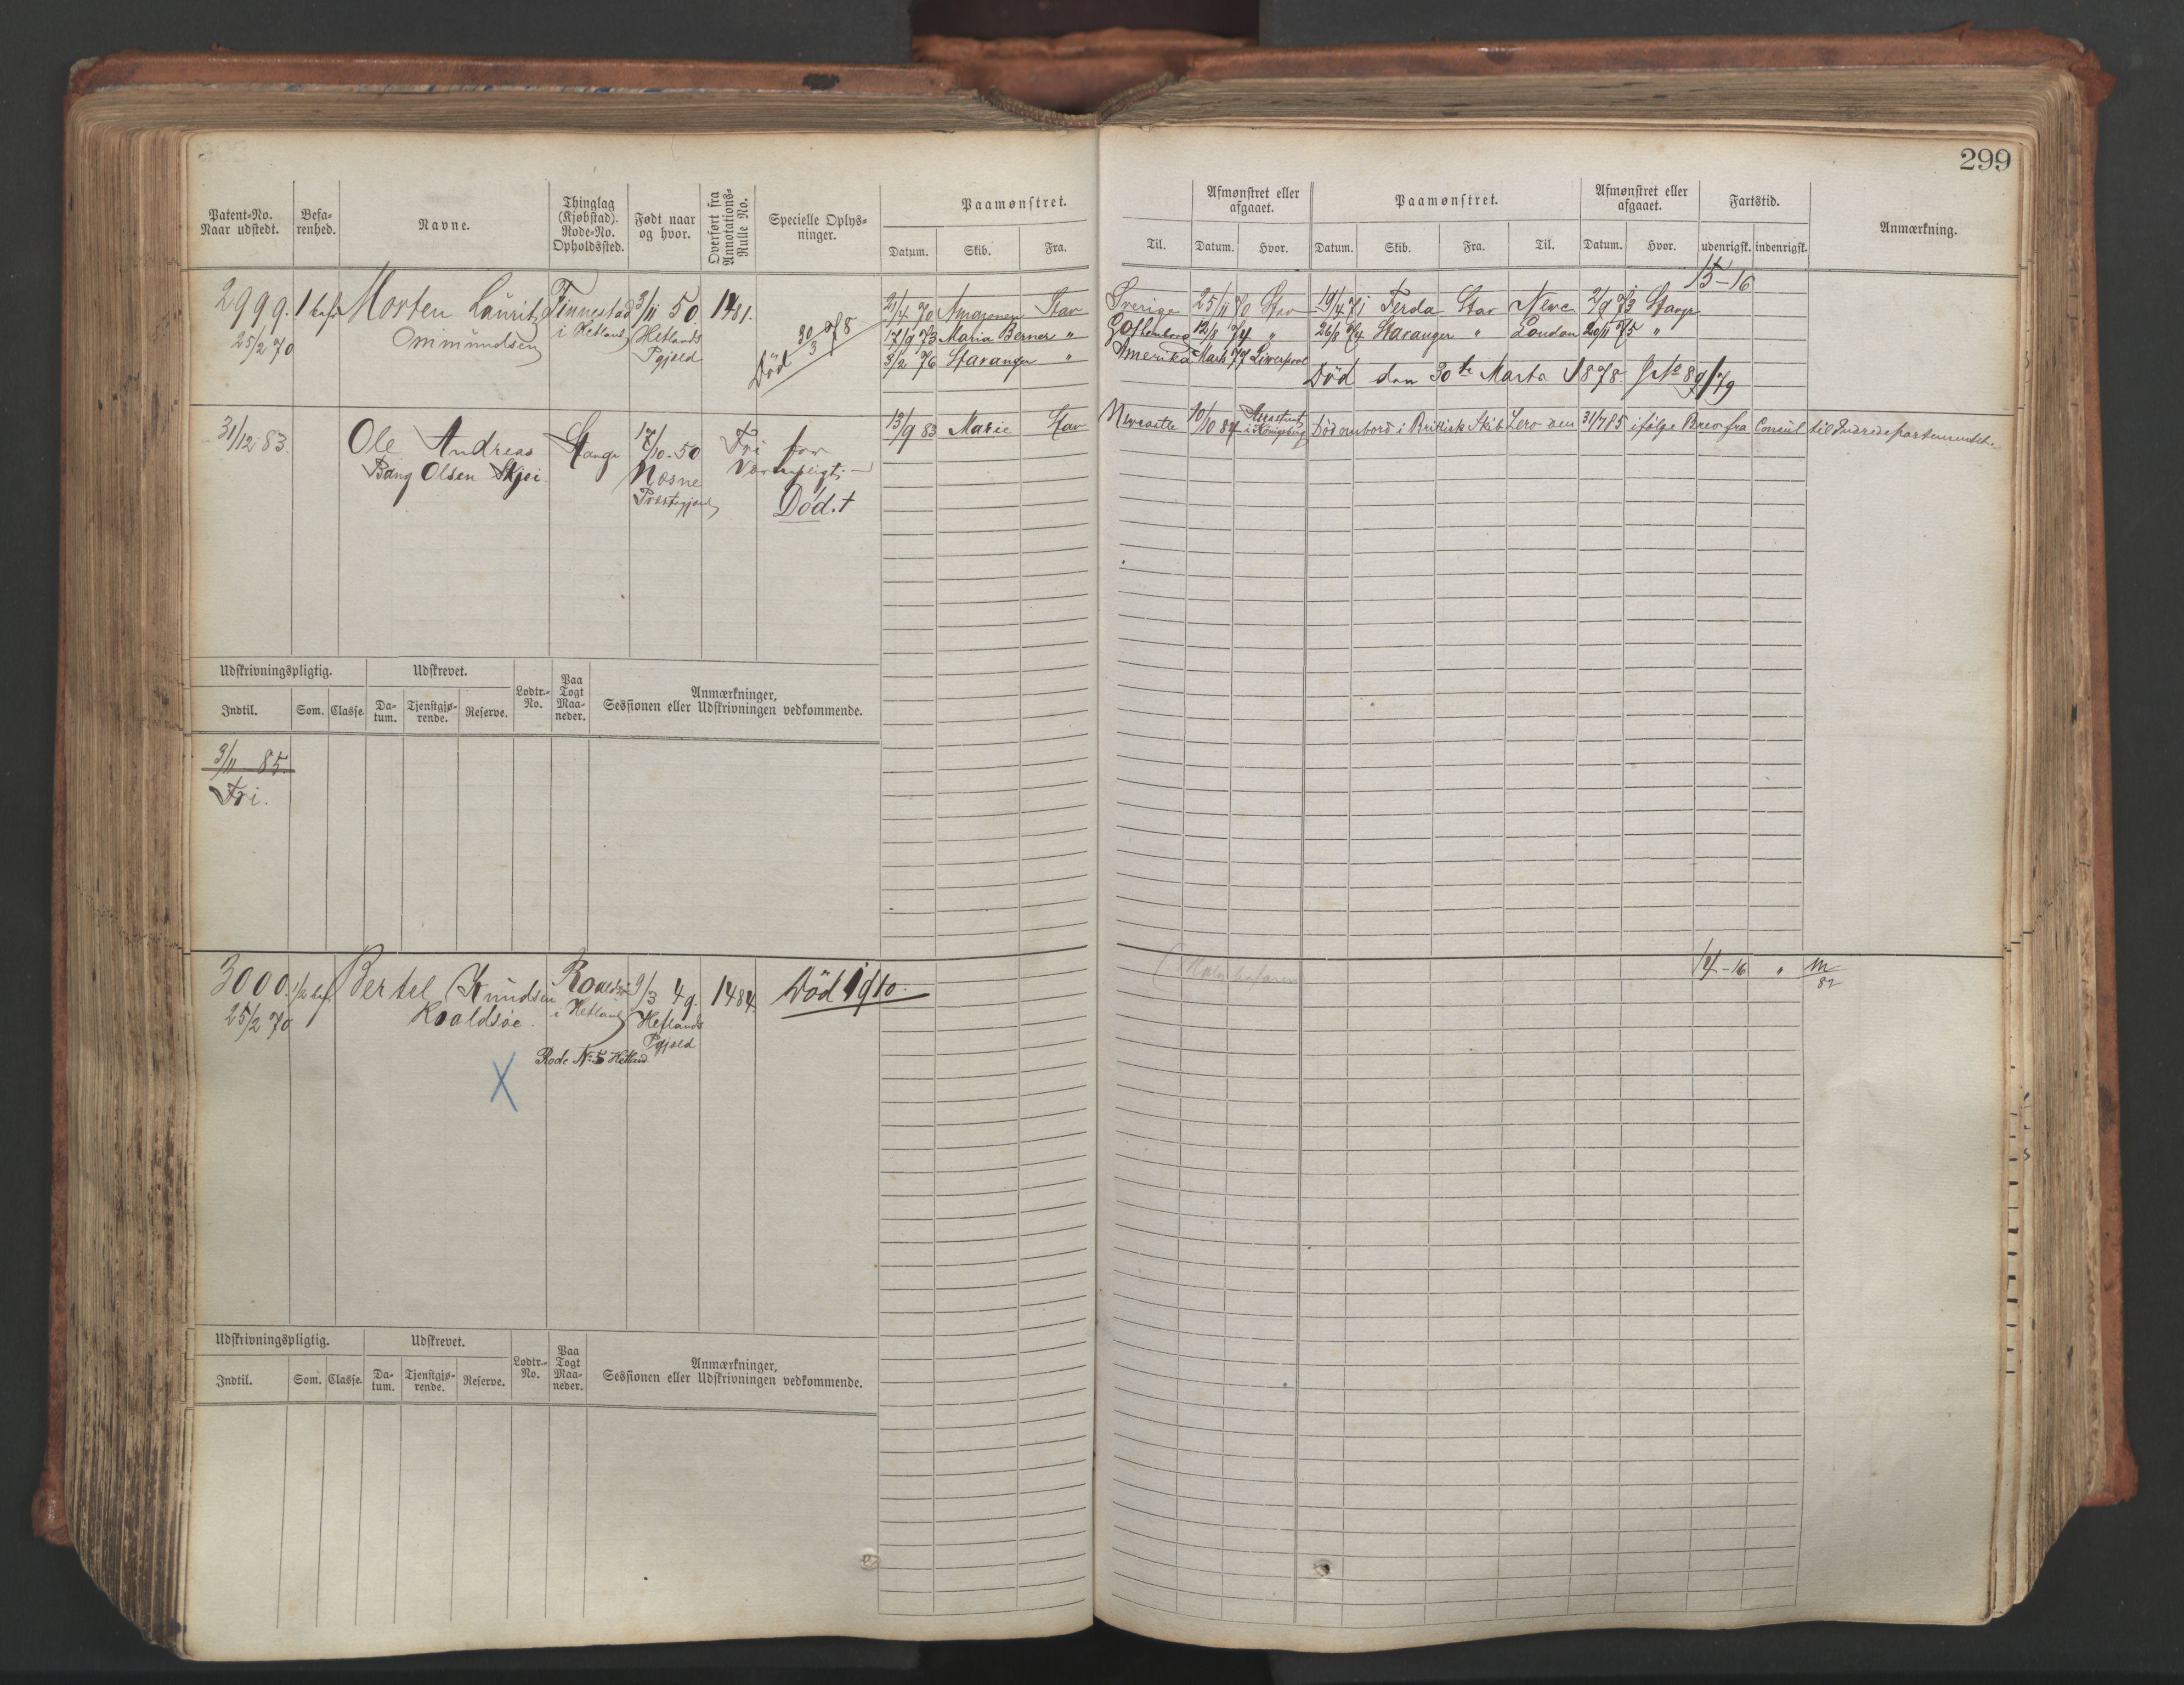 299
Patent-No. Naar udstedt.
Befarenhed.
Navne.
Thinglag (Kjøbstad). Rode-No. Opholdssted.
Født naar og hvor.
Overført fra Annotations-Rulle No.
Specielle Oplysninger.
Paamønstret.
Datum. Skib. Fra.
Til.
Afmønstret eller afgaaet.
Datum. Hvor.
Paamønstret.
Datum. Skib. Fra. Til.
Afmønstret eller afgaaet.
Datum. Hvor.
Fartstid.
udenrigsk. indenrigsk.
Anmærkning.
15-16
2999. Morten Lauritz Finnestad 3/11 50. 1481. 21/4 70 Amazonen Stav Sverige 25/11 70 Stav 19/4 71 Terda Stav Newc 2/9 73 Stavgr
25/2 70 Ommundsen i Hetland Hetlands Pgjæld Død 30/3 78
17/9 73 Maria Berner " Gothenborg 12/8 74 " 26/8 74 Stavanger " London 20/11 75 "
3/2 76 Stavanger " Amerika Mars 77 Liverpool
Død den 30te Marts 1878 No 89/79
31/12 83. Ole Andreas Stavgr 17/10-50 Fri for 13/9 83 Marie Stav Newcastle 10/10 84 Død ombord i Britisk Skib Lero den 31/7 85 ifølge Brev fra Consul til Indredepartementet.
Bang Olsen Skjei Næsne Værnepligt.
Præstegjæld Død.†
Udskrivningspligtig.
Udskrevet.
Lodtr.-No.
Paa Togt Maaneder.
Anmærkninger, Sessionen eller Udskrivningen vedkommende.
Indtil. Som. Classe. Datum. Tjenstgjørende. Reserve.
3/11 85
Fri.
3000. Bertel Knudsen 9/3 49. 1484. Død 1910. 14-16 "
25/2 70 Roaldsøe. i Hetland Hetlands
Pgjæld
Rode No 5 Hetland
X
Udskrivningspligtig.
Udskrevet.
Lodtr.-No.
Paa Togt Maaneder.
Anmærkninger, Sessionen eller Udskrivningen vedkommende.
Indtil. Som. Classe. Datum. Tjenstgjørende. Reserve.